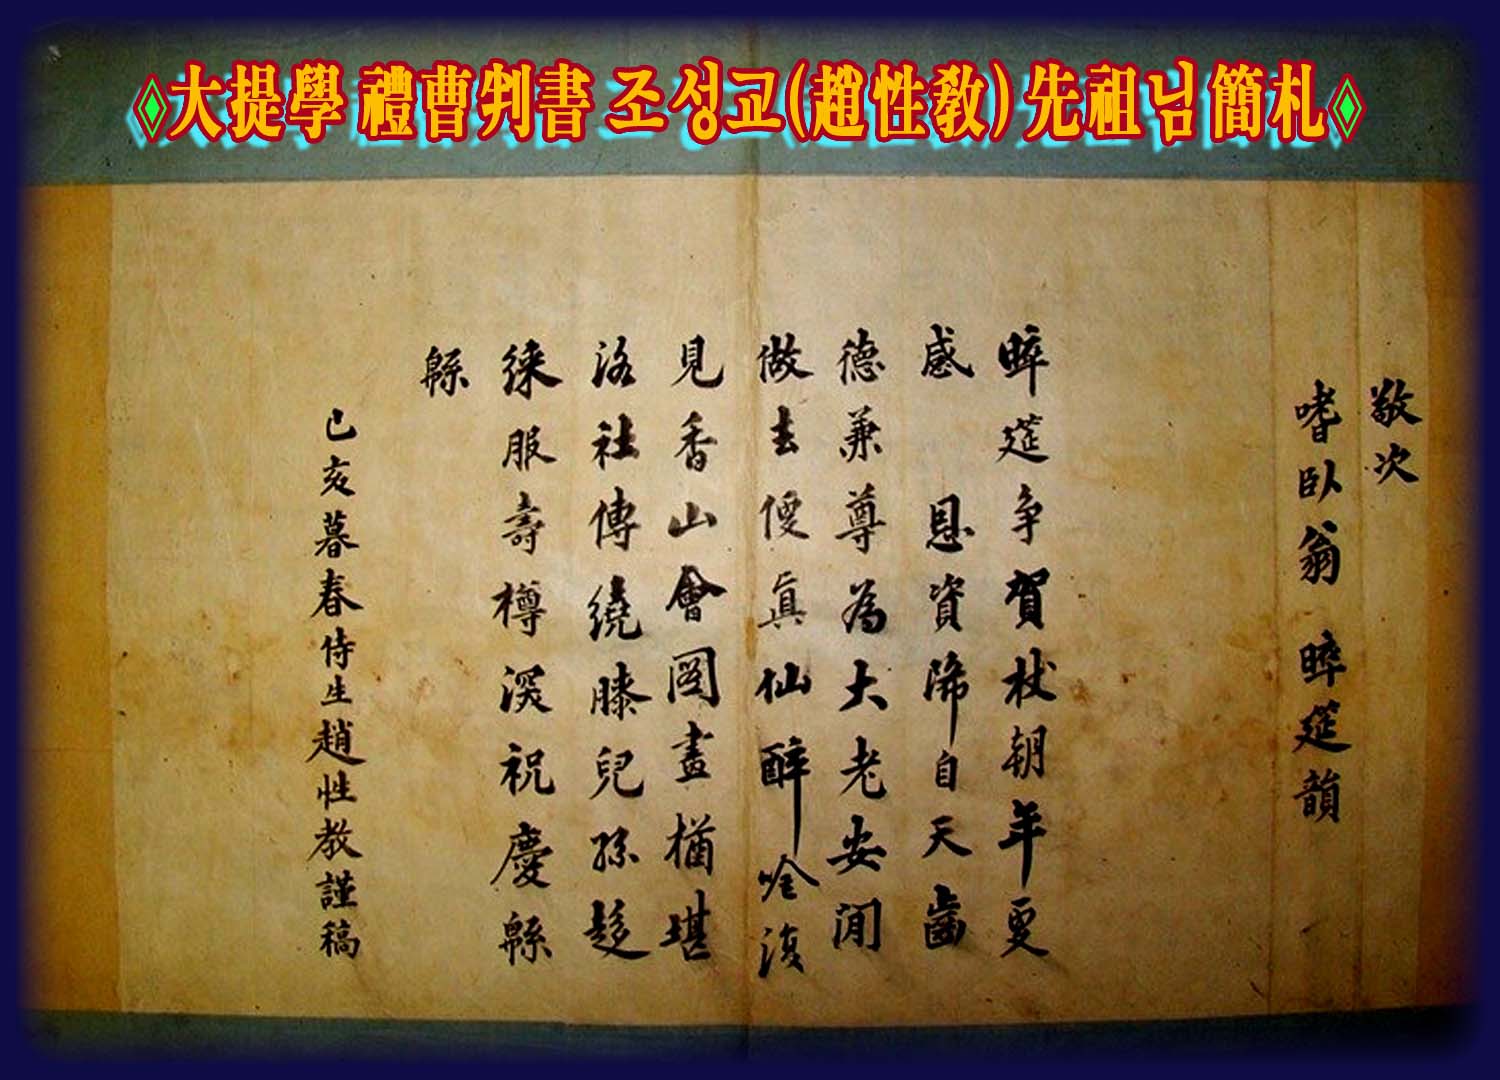 大提學 禮曹判書 조성교(趙性敎) 先祖님 簡札
敬次
嗜臥翁 晬筵韻
晬筵爭賀杖朝年更
感 恩資降自天齒
德兼尊爲大老安閒
做去便眞仙醉吟復
見香山會圖畫猶堪
洛社傳繞膝兒孫趍
綵服壽樽深祝慶緜
緜
己亥暮春侍生趙性敎謹稿